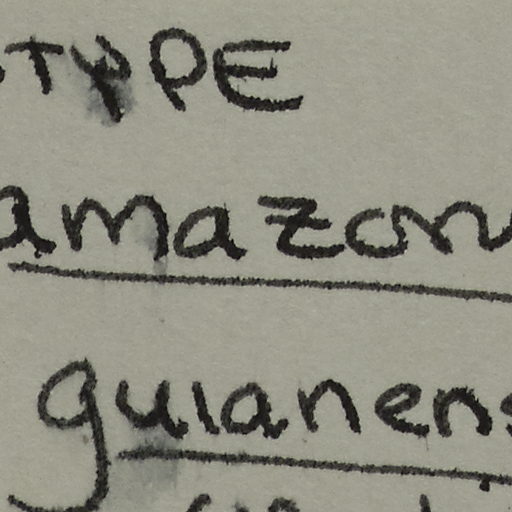 TYPE
amazon
guianens